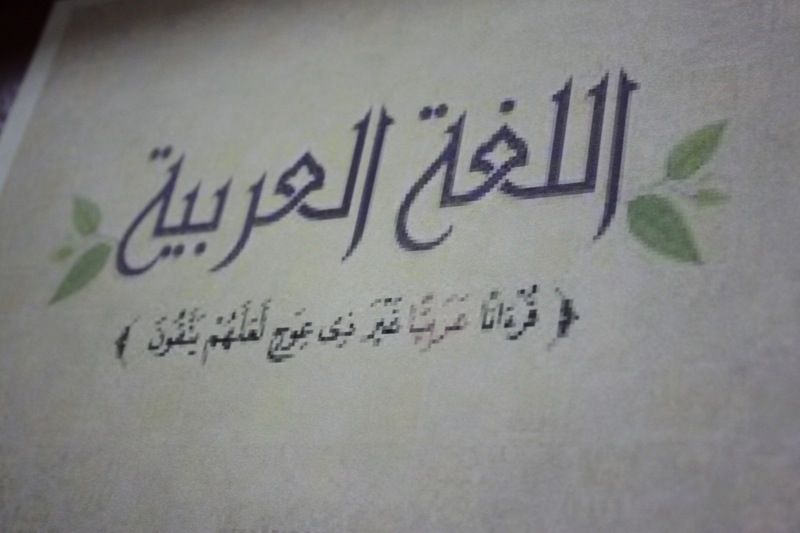 اللغة العربية
﴿ قُرْءَانًا عَرَبِيًّا غَيْرَ ذِى عِوَجٍ لَّعَلَّهُمْ يَتَّقُونَ ﴾